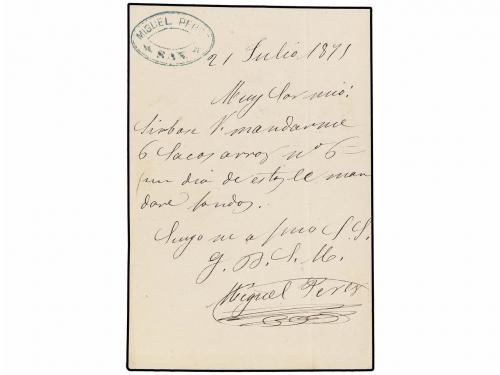 MIGUEL PEREZ
SAX
21 Julio 1891
Muy Sor mio:
Sirbase V. mandarme
6 Sacos arroz nº 6=
un dia de estos le man
dare fondos.
Suyo S.S.
Q. B. S. M.
Miguel Perez